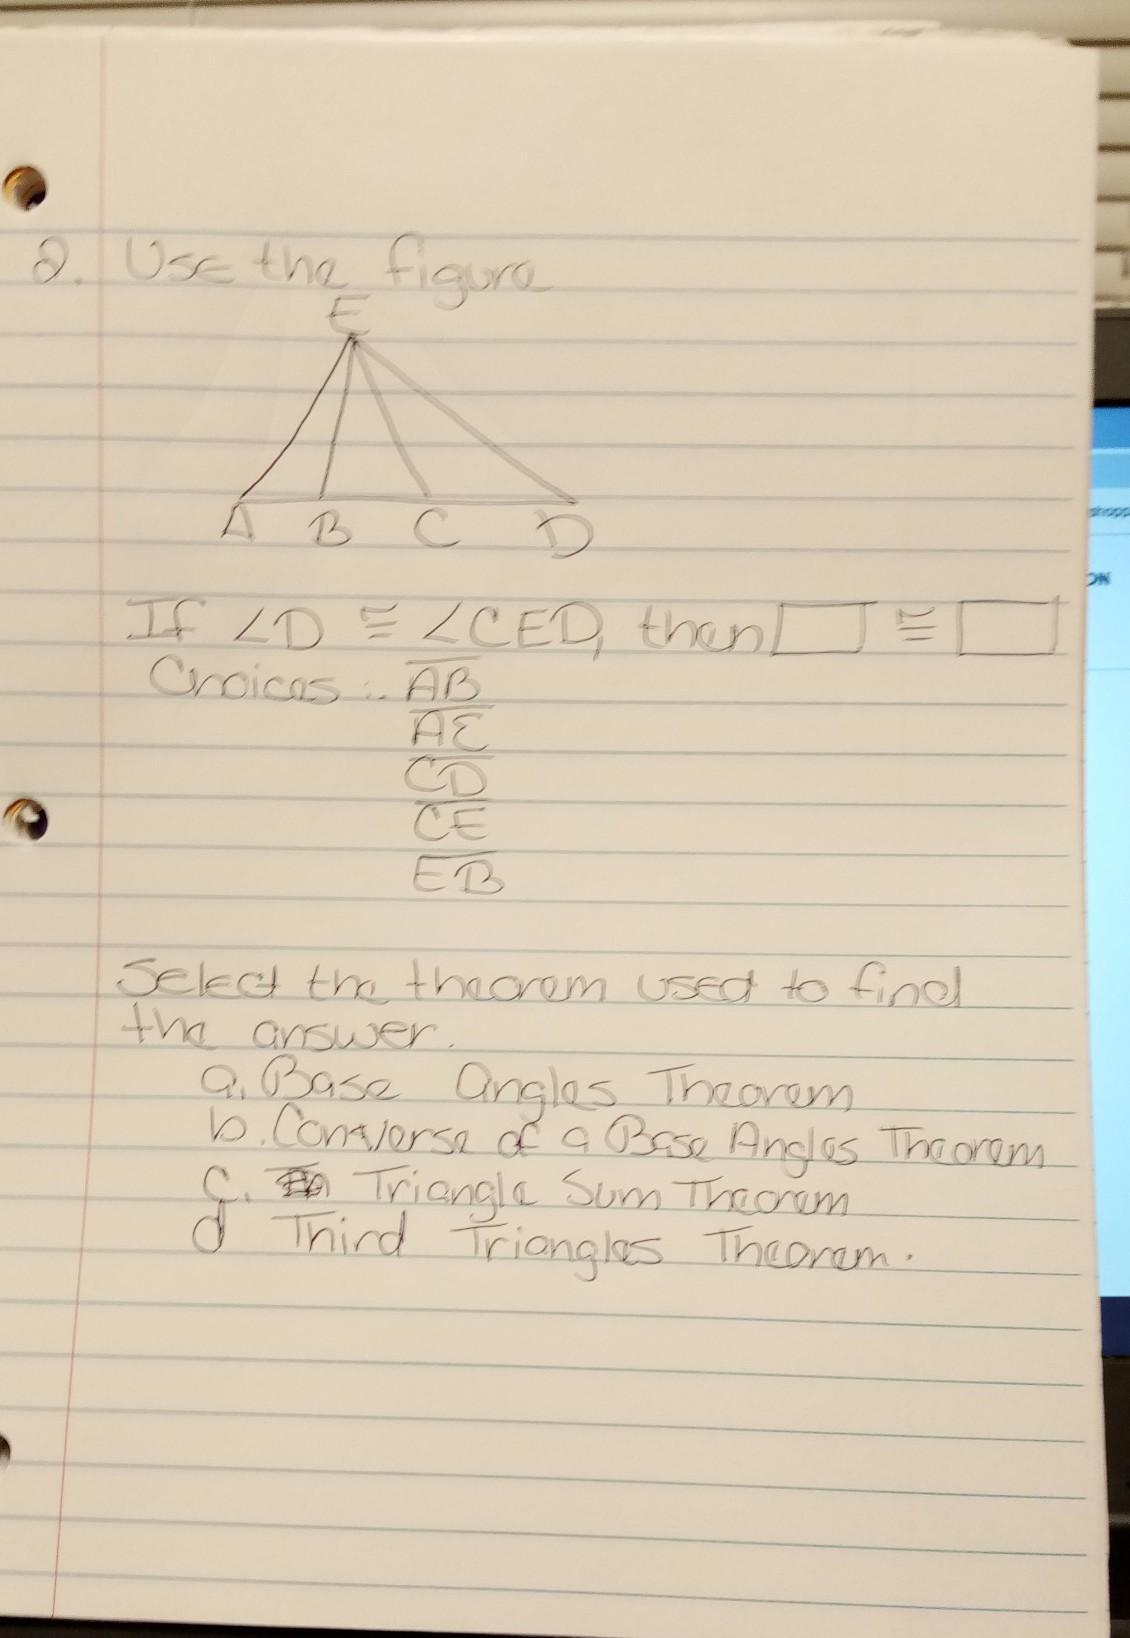 2. Use the figure
E
A B C D
If ∠D ≅ ∠CED, then □ ≅ □
Choices : AB
AE
CD
CE
EB
Select the theorem used to find
the answer.
a. Base Angles Theorem
b. Converse of a Base Angles Theorem
c. Triangle Sum Theorem
d Third Triangles Theorem.
shopp
ON